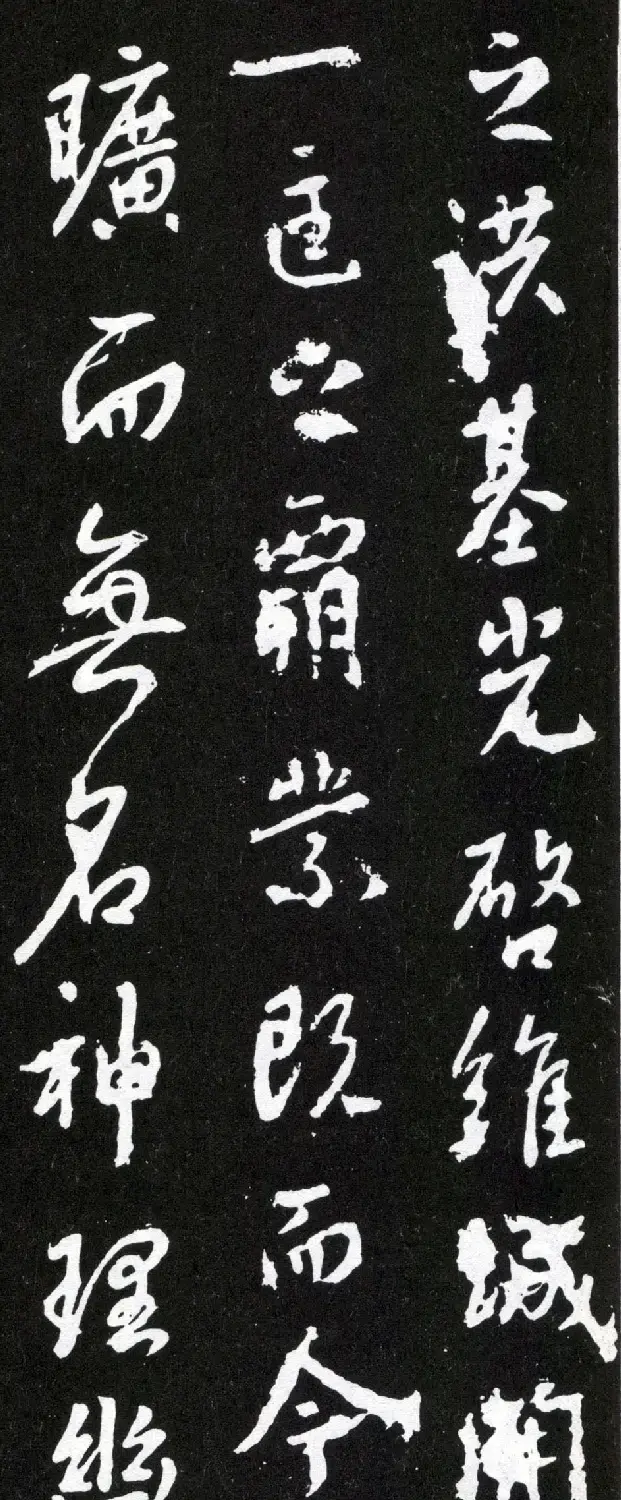 之洪基光啓維城開
一匡之霸業既而今
曠而無名神理幽